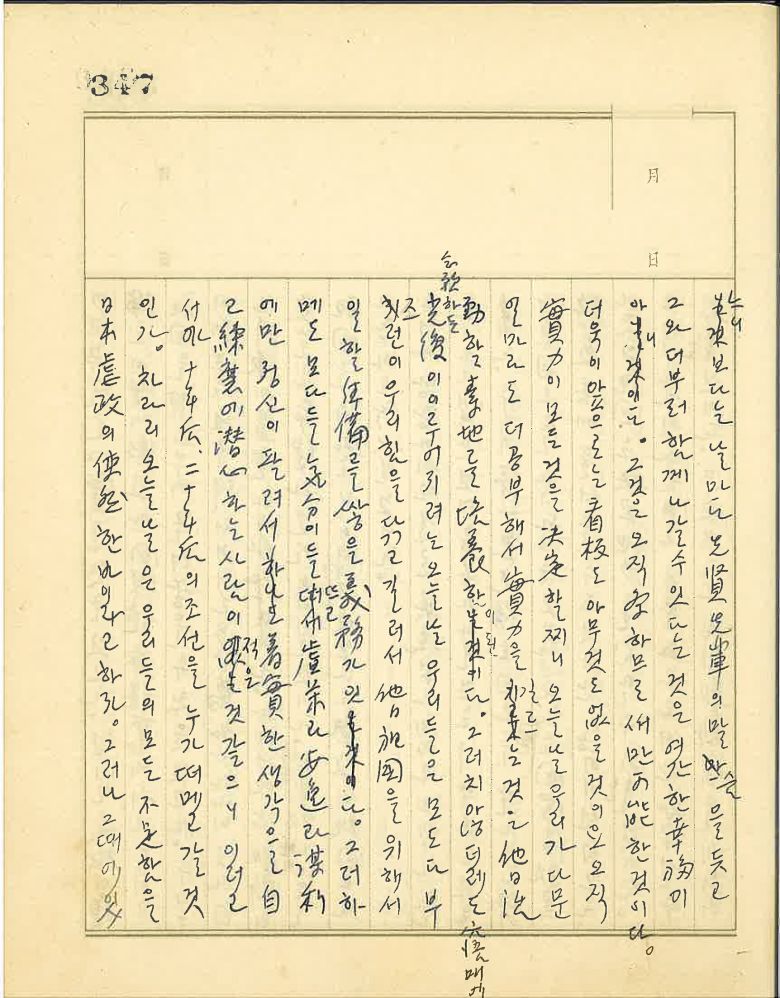 347
月
日
보다는 날마다 先賢先輩의 말씀을 듣고
그와 더부러 함께 나갈 수 있다는 것은 여간한 幸福이
아니다. 그것은 오직 하므로써만 可能한 것이다.
더욱이 앞으로는 看板도 아무것도 없을 것이오 오직
實力이 모든 것을 決定할 찌니 오늘날 우리가 다문
얼마라도 더 공부해서 實力을 길르는 것은 他日 活
動할 素地를 培養함이 된다. 그러치 않더레도 寤寐에
念願하든 光復이 이루어지려는 오늘날 우리들은 모도다 부
조런이 우리 힘을 닦고 길러서 他日 祖国을 위해서
일할 準備를 쌓을 義務가 있다. 그러하
메도 모다들 氣分이 들뜨고 虛榮과 安逸과 謀利
에만 정신이 팔려서 着實한 생각으로 自
己 練磨에 潛心하는 사람이 적은 것 같으니 이러고
서야 十年后、二十年后의 조선을 누가 떠메고 갈 것
인가。차라리 오늘날은 우리들의 모든 不足함을
日本 虐政의 使然한 바이라고 하자。그러나 그때에